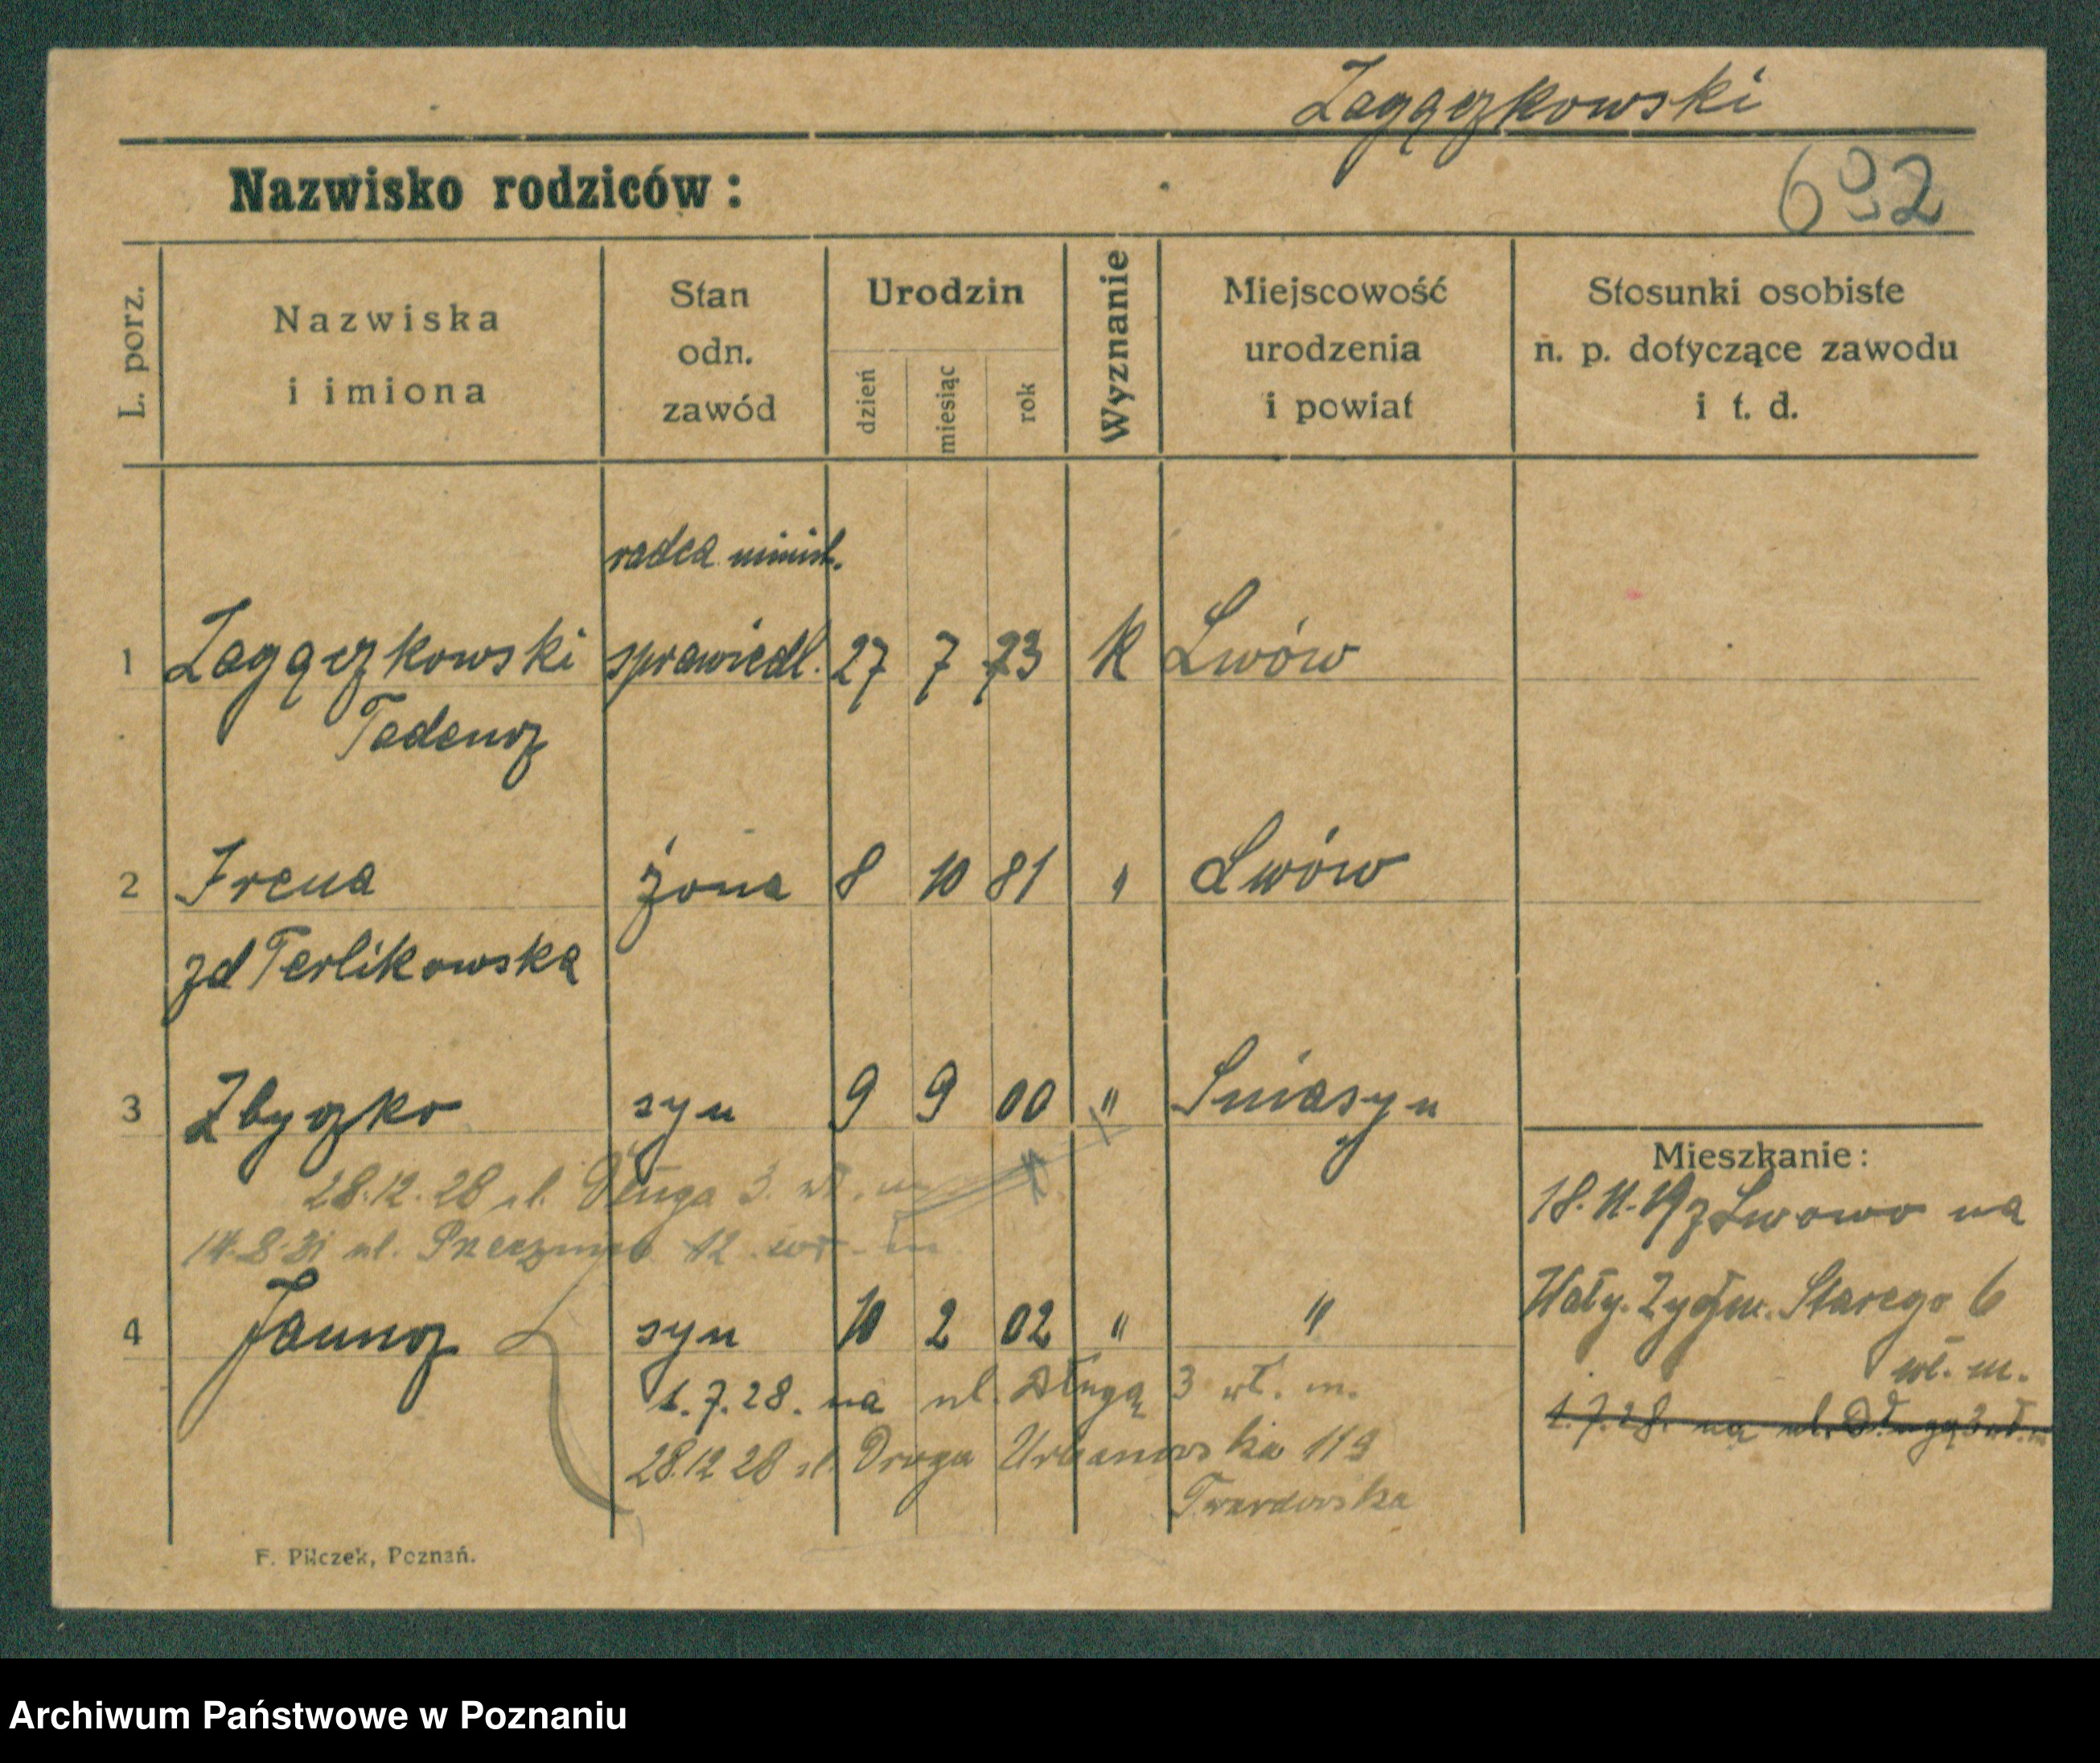 Zagączkowski
Nazwisko rodziców:
692
L. porz.
Nazwiska
i imiona
Stan
odn.
zawód
Urodzin
dzień
miesiąc
rok
Wyznanie
Miejscowość
urodzenia
i powiat
Stosunki osobiste
n. p. dotyczące zawodu
i t. d.
radca minist.
1 Zagączkowski sprawiedl. 27 7 73 K Lwów
Tadeusz
2 Irena żona 8 10 81 " Lwów
zd Terlikowska
3 Zbyszko syn 9 9 00 " Śniatyn
Mieszkanie:
28.12.28 ul. Długa 3. wł. m
18.11.19 z Lwowa na
14.8.31 ul. 12
Wały. Zygm. Starego 6
4 Janusz syn 10 2 02 " "
wł. m.
1.7.28. na ul. Długą 3 wł. m.
1.7.28. na ul. Długą 3 wł. m
28.12 28 ul. Droga Urbanowska 119
Twardowska
F. Pilczek, Poznań.
Archiwum Państwowe w Poznaniu